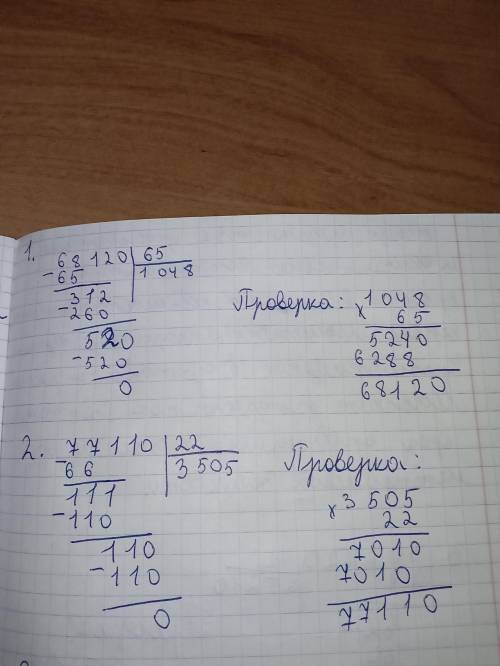 1.
68120 65
-65 1048
312
-260
520
-520
0
Проверка:
x 1048
65
5240
6288
68120
2. 77110 22
-66 3505
111
-110
110
-110
0
Проверка:
x 3505
22
7010
7010
77110